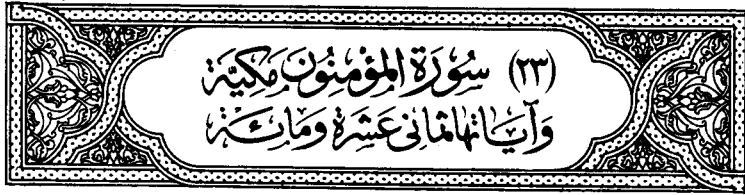 (٢٣) سُورَة المؤمِنُون مَكيَّة
وَآيَاتهَا ثمَاني عَشرَة وَمَائَة